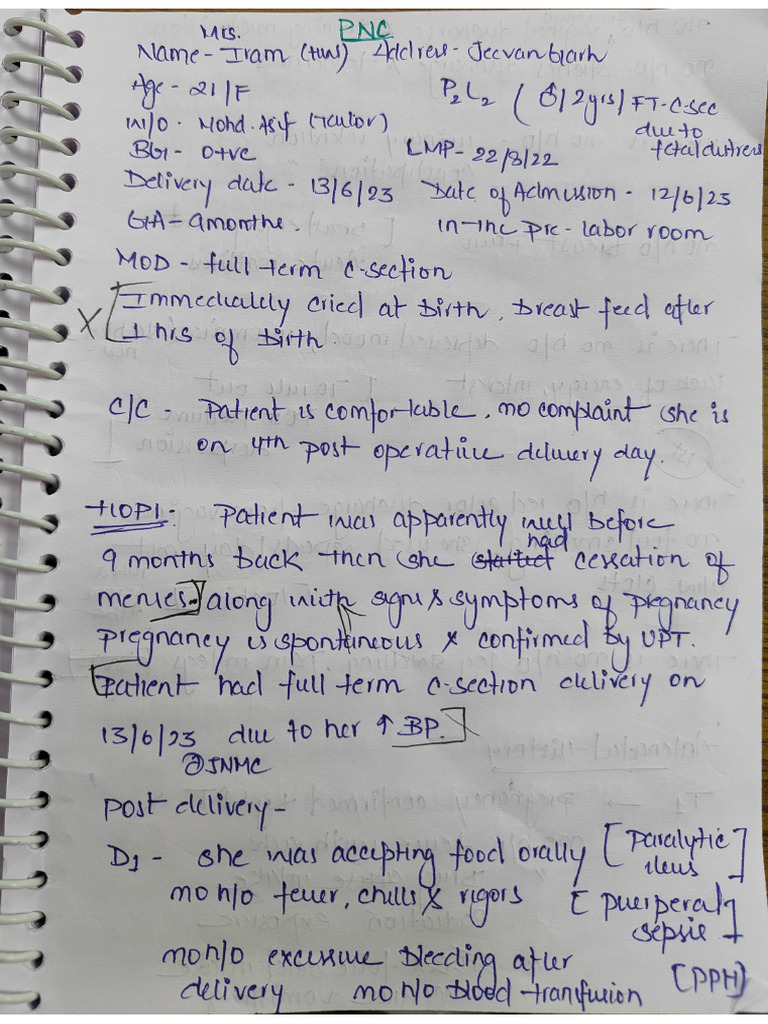 PNC
Mrs.
Name - Iram (HW) Address - Jeevangarh
Age - 21/F P2L2 ( ♂/2yrs/FT-C-sec
w/o. Mohd. Asif (Tailor) due to
BG - O+ve LMP - 22/8/22 fetal distress
Delivery date - 13/6/23 Date of Admission - 12/6/23
GA - 9 months. in-the pre-labor room
MOD - full term C-section
X [Immediately cried at birth, breast feed after
1 hrs of birth
C/C - Patient is comfortable, no complaint she is
on 4th post operative delivery day.
HOPI - Patient was apparently well before
had
9 months back then she started cessation of
menses.] along with signs & symptoms of pregnancy
pregnancy is spontineous & confirmed by UPT.
[Patient had full term C-section delivery on
13/6/23 due to her ↑ BP.]
@JNMC
Post delivery -
D1 - she was accepting food orally [Paralytic
ileus]
no h/o fever, chills & rigors [puerperal
sepsis]
no h/o excessive bleeding after
delivery no h/o blood transfusion [PPH]